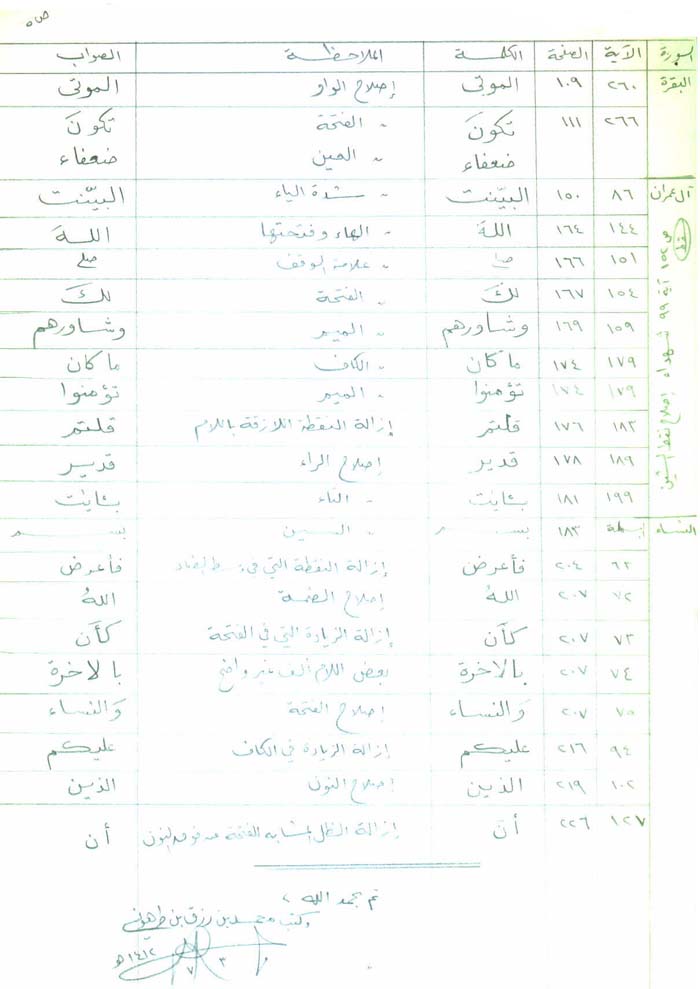 ص ٥
السورة الآية الصفحة الكلمة الملاحظة الصواب
البقرة ٢٦٠ ١٠٩ الموتى إصلاح الواو الموتى
٢٦٦ ١١١ تكونَ " الفتحة تكونَ
ضعفاء " العين ضعفاء
آل عمران ٨٦ ١٥٠ البيّنت " شدة الياء البيّنت
١٤٤ ١٦٤ اللهَ " الهاء وفتحتها اللهَ
١٥١ ١٦٦ صلے " علامة الوقف صلے
١٥٤ ١٦٧ لكَ " الفتحة لكَ
١٥٩ ١٦٩ وشاورهم " الميم وشاورهم
١٧٩ ١٧٤ ما كان " الكاف ما كان
١٧٩ ١٧٤ تؤمنوا " الميم تؤمنوا
١٨٣ ١٧٦ قلتم إزالة النقطة اللازقة باللام قلتم
١٨٩ ١٧٨ قدير إصلاح الراء قدير
١٩٩ ١٨١ بـٔايت " التاء بـٔايت
ص ١٥٢ آية ٩٩ شهداء إصلاح نقط الشين
فقط
النساء بسملة ١٨٣ بسم " السين بسم
٦٣ ٢٠٤ فأعرض إزالة النقطة التي في وسط الضاد فأعرض
٧٢ ٢٠٧ اللهُ إصلاح الضمة اللهُ
٧٣ ٢٠٧ كأَن إزالة الزيادة التي في الفتحة كأَن
٧٤ ٢٠٧ بالاخرة بعض اللام ألف غير واضح بالاخرة
٧٥ ٢٠٧ وَالنساء إصلاح الفتحة وَالنساء
٩٤ ٢١٦ عليكم إزالة الزيادة في الكاف عليكم
١٠٢ ٢١٩ الذين إصلاح النون الذين
١٢٧ ٢٢٦ أن إزالة الظل المشابه الفتحة من فوق النون أن
تم بحمد الله ،
وكتب محمد بن رزق بن طرهوني
٣ ٧ ١٤١٢ هـ